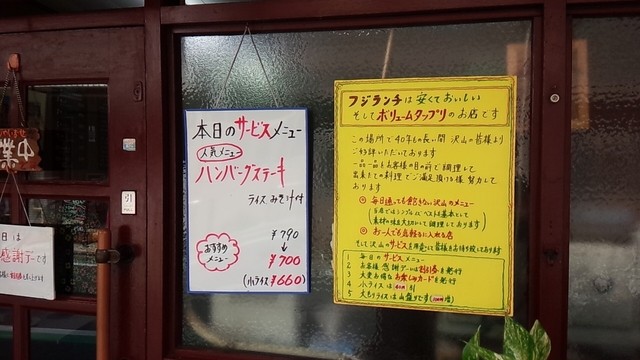 本日のサービスメニュー
人気メニュー
ハンバーグステーキ
ライス みそ汁付
¥790
↓
¥700
(小ライス¥660)
おすすめ
メニュー
フジランチは安くておいしい
そしてボリュームタップリのお店です
この場所で40年もの長い間 沢山の皆様より
ご好評いただいております
一品一品お客様の目の前で調理して
出来たての料理でご満足頂ける様 努力して
おります
◎ 毎日通っても飽きない沢山のメニュー
◎ お一人でも気軽に入れる店
そして沢山のサービスを用意して皆様をお待ち致しております
1 毎日のサービスメニュー
2 お客様感謝デーには割引券を発行
3 大変お得なお楽しみカードを発行
4 小ライスは 引
5 大もりライスは山盛りです
営業中
引
日は
感謝デーです